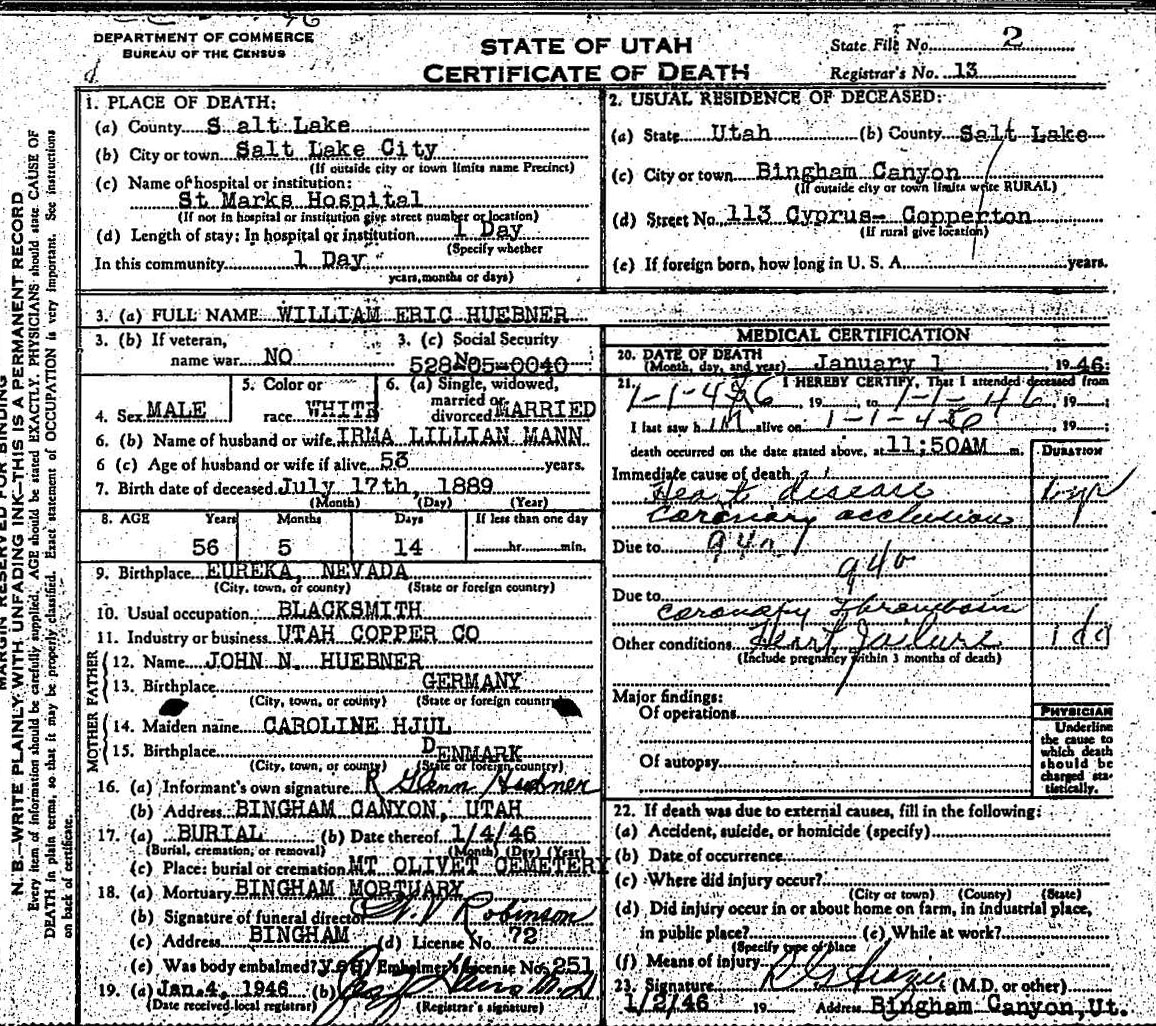 DEPARTMENT OF COMMERCE
BUREAU OF THE CENSUS
STATE OF UTAH
CERTIFICATE OF DEATH
State File No. 2
Registrar's No. 13
MARGIN RESERVED FOR BINDING
N. B.—WRITE PLAINLY, WITH UNFADING INK—THIS IS A PERMANENT RECORD
Every item of information should be carefully supplied. AGE should be stated EXACTLY. PHYSICIANS should state CAUSE OF
DEATH in plain terms, so that it may be properly classified. Exact statement of OCCUPATION is very important. See instructions
on back of certificate.
1. PLACE OF DEATH:
(a) County S alt Lake
(b) City or town Salt Lake City
(If outside city or town limits name Precinct)
(c) Name of hospital or institution:
St Marks Hospital
(If not in hospital or institution give street number or location)
(d) Length of stay: In hospital or institution 1 Day
(Specify whether
In this community 1 Day
years, months or days)
2. USUAL RESIDENCE OF DECEASED:
(a) State Utah (b) County Salt Lake
(c) City or town Bingham Canyon
(If outside city or town limits write RURAL)
(d) Street No. 113 Cyprus- Copperton
(If rural give location)
(e) If foreign born, how long in U. S. A. years.
3. (a) FULL NAME WILLIAM ERIC HUEBNER
3. (b) If veteran, 3. (c) Social Security
name war NO No. 528-05-0040
4. Sex MALE
5. Color or
race WHITE
6. (a) Single, widowed,
married or
divorced MARRIED
6. (b) Name of husband or wife IRMA LILLIAN MANN
6 (c) Age of husband or wife if alive 53 years.
7. Birth date of deceased July 17th, 1889
(Month) (Day) (Year)
8. AGE Years Months Days If less than one day
56 5 14 hr. min.
9. Birthplace EUREKA, NEVADA
(City, town, or county) (State or foreign country)
10. Usual occupation BLACKSMITH
11. Industry or business UTAH COPPER CO
FATHER
12. Name JOHN N. HUEBNER
13. Birthplace GERMANY
(City, town, or county) (State or foreign country
MOTHER
14. Maiden name CAROLINE HJUL
15. Birthplace DENMARK
(City, town, or county) (State or foreign country)
16. (a) Informant's own signature R Glenn Huebner
(b) Address BINGHAM CANYON, UTAH
17. (a) BURIAL (b) Date thereof 1/4/46
(Burial, cremation, or removal) (Month) (Day) (Year)
(c) Place: burial or cremation MT OLIVET CEMETERY
18. (a) Mortuary BINGHAM MORTUARY
(b) Signature of funeral director Robinson
(c) Address BINGHAM (d) License No. 72
(e) Was body embalmed? yes Embalmer's License No. 251
19. (a) Jan 4, 1946 (b)
(Date received local registrar) (Registrar's signature)
MEDICAL CERTIFICATION
20. DATE OF DEATH
(Month, day, and year) January 1 1946
21. I HEREBY CERTIFY, That I attended deceased from
1-1-46, 19 to 1-1-46, 19 ;
I last saw h im alive on 1-1-46, 19 ;
death occurred on the date stated above, at 11:50AM m.
DURATION
Immediate cause of death
Heart disease
Coronary occlusion
Due to 94a
940
Due to
Coronary Thrombosis
Other conditions Heart Failure 1 da
(Include pregnancy within 3 months of death)
Major findings:
Of operations
Of autopsy
PHYSICIAN
Underline
the cause to
which death
should be
charged sta-
tistically.
22. If death was due to external causes, fill in the following:
(a) Accident, suicide, or homicide (specify)
(b) Date of occurrence
(c) Where did injury occur?
(City or town) (County) (State)
(d) Did injury occur in or about home on farm, in industrial place,
in public place? (e) While at work?
(Specify type of place
(f) Means of injury
23. Signature (M.D. or other)
1/2/46 19 Address Bingham Canyon, Ut.